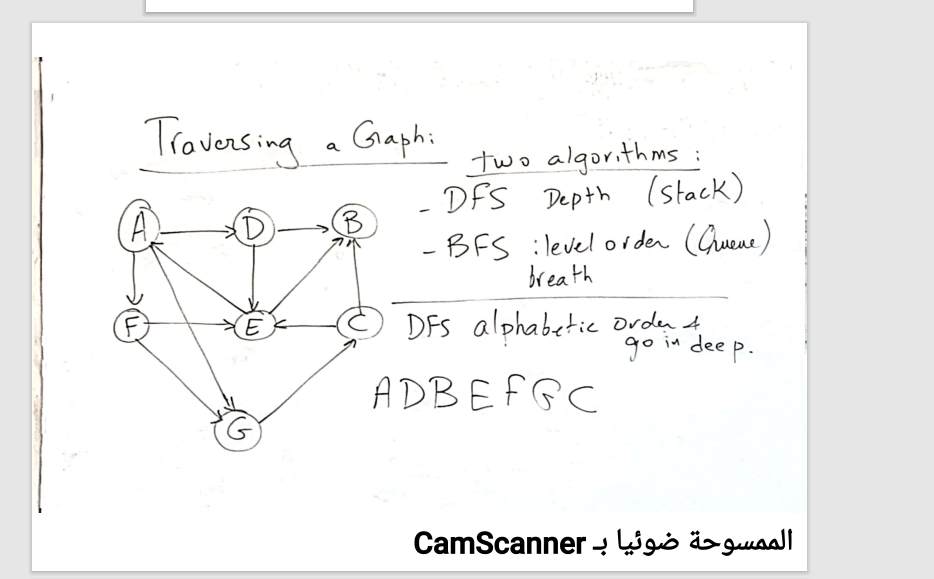 Traversing a Graph:
two algorithms :
- DFS Depth (stack)
- BFS : level order (Queue)
breath
DFS alphabetic order &
go in deep.
ADBEFGC
A
D
B
F
E
C
G
الممسوحة ضوئيا بـ CamScanner